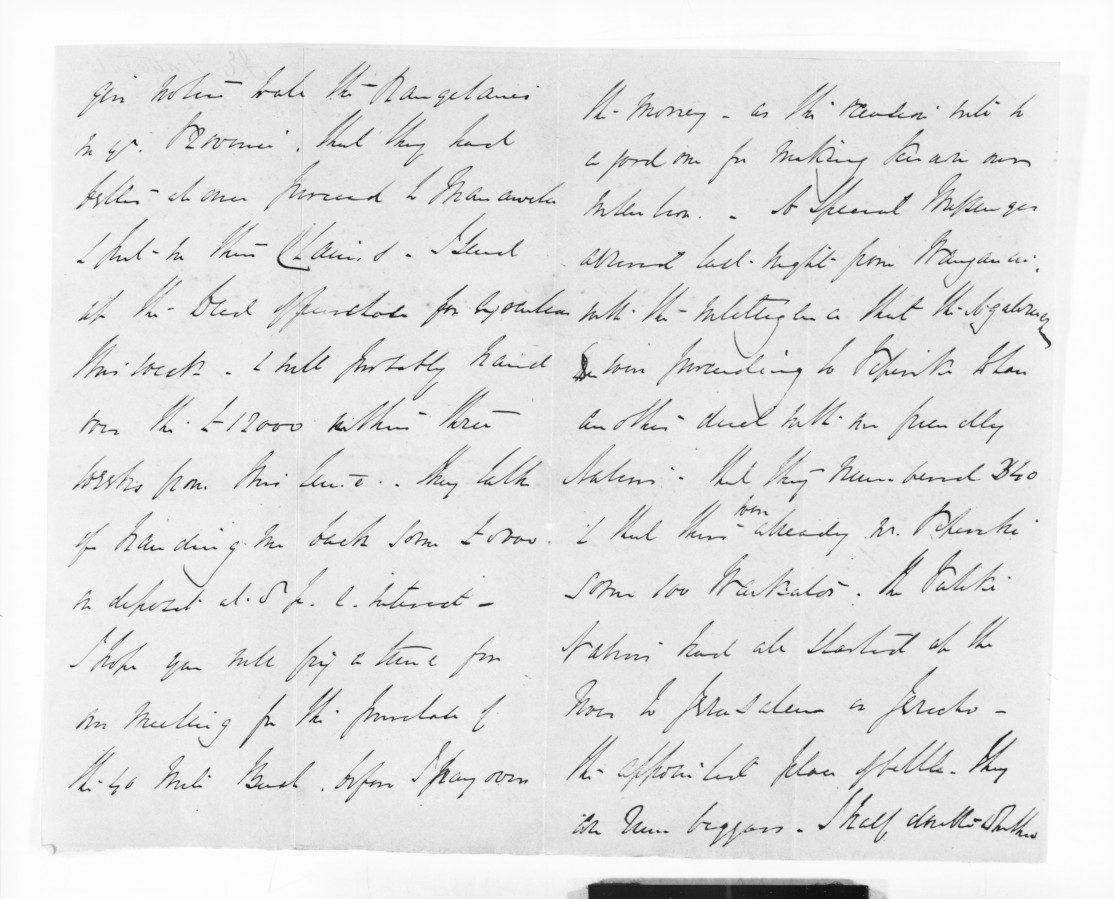 give notice to all the Rangitanes
in yr. Province, that they had
better at once proceed to Manawatu
& put in their Claims. I send
up the Deed of purchase for execution
this week. & will probably hand
over the £12000 within three
weeks from this time. They talk
of handing me back some
on deposit at 5 p. c. interest -
I hope you will fix a time for
our meeting for the purchase of
the 40 Mile Bush, before I pay over
the money - as the occasion will be
a good one for making known our
intention. - A Special Messenger
arrived last night from Wanganui,
with the intelligence that the
were proceeding to Pipiriki to have
another duel with our friendly
Natives - that they numbered 340
& that there were already in Pipiriki
some 100 Waikatos. The
Natives had all started up the
River to Jerusalem or Jericho -
the appointed place of battle. They
are beggars - I half doubt whether